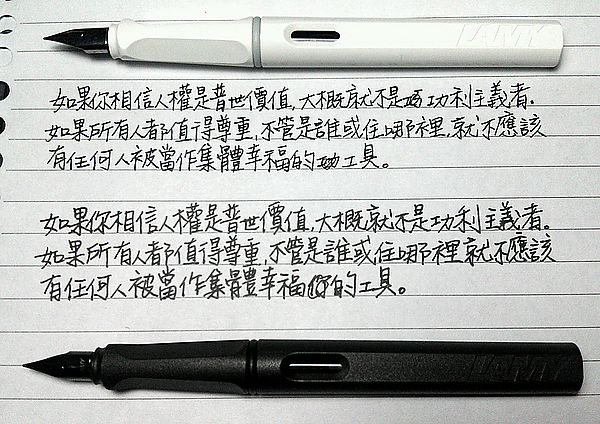 LAMY
如果你相信人權是普世價值,大概就不是功利主義者.
如果所有人都值得尊重,不管是誰或住哪裡,就不應該
有任何人被當作集體幸福的工具。
如果你相信人權是普世價值,大概就不是功利主義者。
如果所有人都值得尊重,不管是誰或住哪裡就不應該
有任何人被當作集體幸福的工具。
LAMY